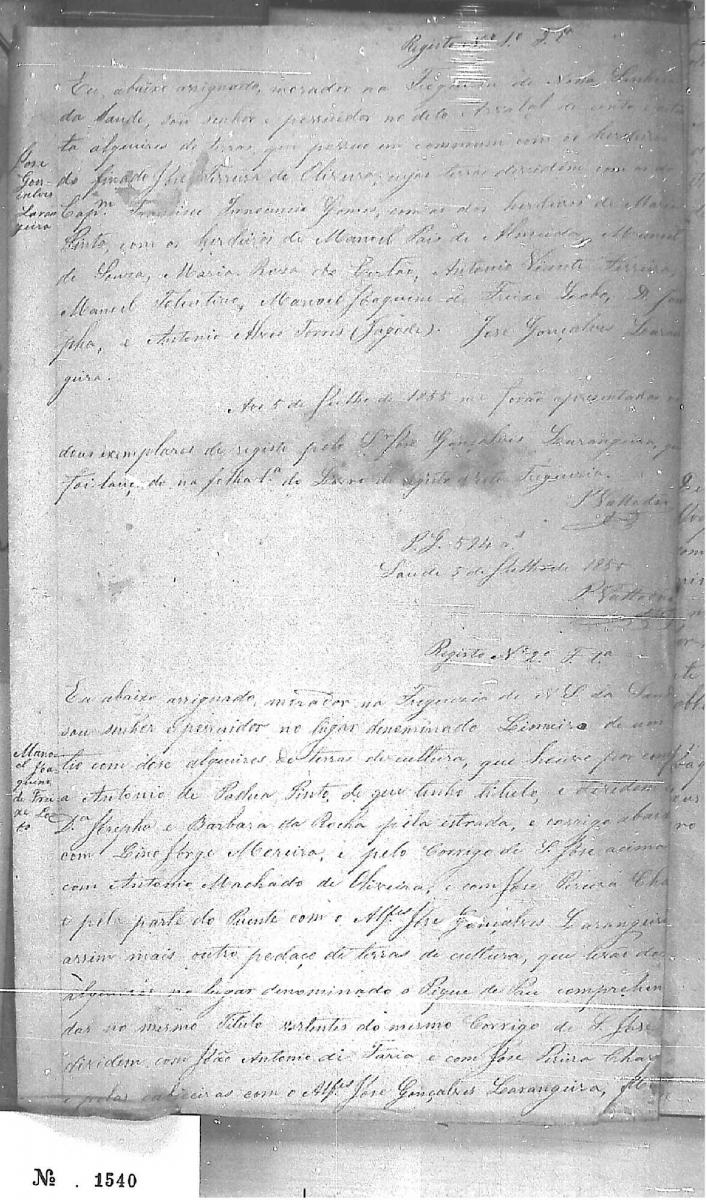 Registo Nº 1º F. 1ª
Eu abaixo assignado, morador na Freguezia de Nossa Senhora
da Saude, sou senhor e possuidor no dito Arraial de cento e
ta alqueires de terras, que possuo em commum com os herdeiros
do finado José Ferreira de Oliveira, cujas terras dividem com as do
Capm. Francisco Innocencio Gomes, com as dos herdeiros de Maria
Pinto, com os herdeiros de Manoel Pais de Almeida, Manoel
de Souza, Maria Rosa do Certão, Antonio Vicente Ferreira,
Manoel Tolentino, Manoel Joaquim de Freixe Lobo, D. Jose
pha, e Antonio Alves Torres (Jagode). José Gonçalves Laran
geira.
José
Gon-
calves
Laran
geira
Aos 5 de Julho de 1855 me forão apresentados os
dous exemplares de registo pelo Sr. José Gonçalves Larangeira, que
foi lançado na folha 1ª do Livro de registo desta Freguezia.
P. G. 524 rs
Saude 5 de Julho de 1855
Registo Nº 2º F. 1ª
Eu abaixo assignado, morador na Freguezia de N. S. da Saude
sou senhor e possuidor no lugar denominado Limeira de um
tio com dose alqueires de terras de cultura, que houve por comp
a Antonio de Padua Pinto, de que tenho titulo, e dividem
Dª Josepha e Barbara da Rocha pela estrada, e corrigo abaixo
com Lino Jorge Moreira, e pelo Corrigo de S. José acima
com Antonio Machado de Oliveira, e com José Pereira Cha
e pela parte do Puente com o Alfes José Gonçalves Larangeira
assim mais outro pedaço de terras de cultura, que terão dos
alqueires no lugar denominado o Pique de Páu comprehen
das no mesmo Titulo vertentes do mesmo Corrigo de S. José
dividem com João Antonio de Faria e com José Pereira Chav
e pelas cabeceiras com o Alfes José Gonçalves Larangeira,
Mano
el Joa-
quim
de Frei
xe Lo-
bo
Nº . 1540